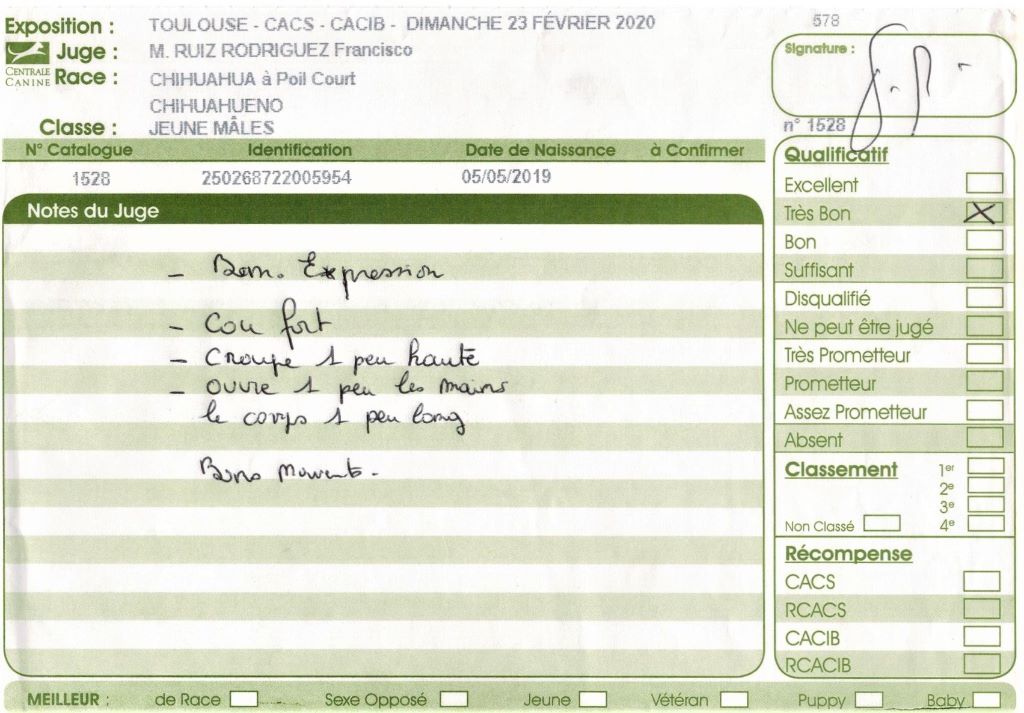 Exposition : TOULOUSE - CACS - CACIB - DIMANCHE 23 FÉVRIER 2020
578
Juge : M. RUIZ RODRIGUEZ Francisco
Signature :
CENTRALE CANINE
Race : CHIHUAHUA à Poil Court
CHIHUAHUENO
Classe : JEUNE MÂLES
n° 1528
N° Catalogue Identification Date de Naissance à Confirmer
1528 250268722005954 05/05/2019
Notes du Juge
- Bon. Expression
- Cou fort
- Croupe 1 peu haute
- ouvre 1 peu les mains
le corps 1 peu long
Bons
Qualificatif
Excellent
Très Bon X
Bon
Suffisant
Disqualifié
Ne peut être jugé
Très Prometteur
Prometteur
Assez Prometteur
Absent
Classement 1er
2e
3e
Non Classé 4e
Récompense
CACS
RCACS
CACIB
RCACIB
MEILLEUR : de Race Sexe Opposé Jeune Vétéran Puppy Baby